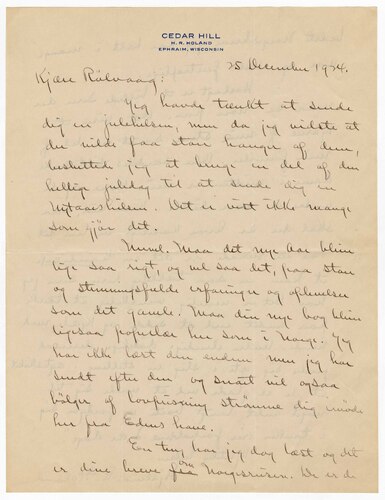 CEDAR HILL
H. R. HOLAND
EPHRAIM, WISCONSIN
25 December 1924.
Kjære Rölvaag:
Jeg havde tænkt at sende
dig en julehilsen, men da jeg vidste at
du vilde faa stor haug af dem,
besluttede jeg at bruge en del af den
hellige juledag til at sende dig en
Nytaarshilsen. Det er vist ikke mange
som gjör det.
Maa det nye bli
lige saa rigt, og vel saa det, paa store
og stemningsfulde erfaringer og oplevelser
som det gamle. Maa din nye bog blive
ligesaa populær her som i Norge. Jeg
har ikke læst den endnu men jeg har
sendt efter den og snart vil ogsaa
bölger af lovprisning strömme dig imöde
her fra Edens have.
En ting har jeg dog læst og det
er dine breve om Norgesreisen. De er de